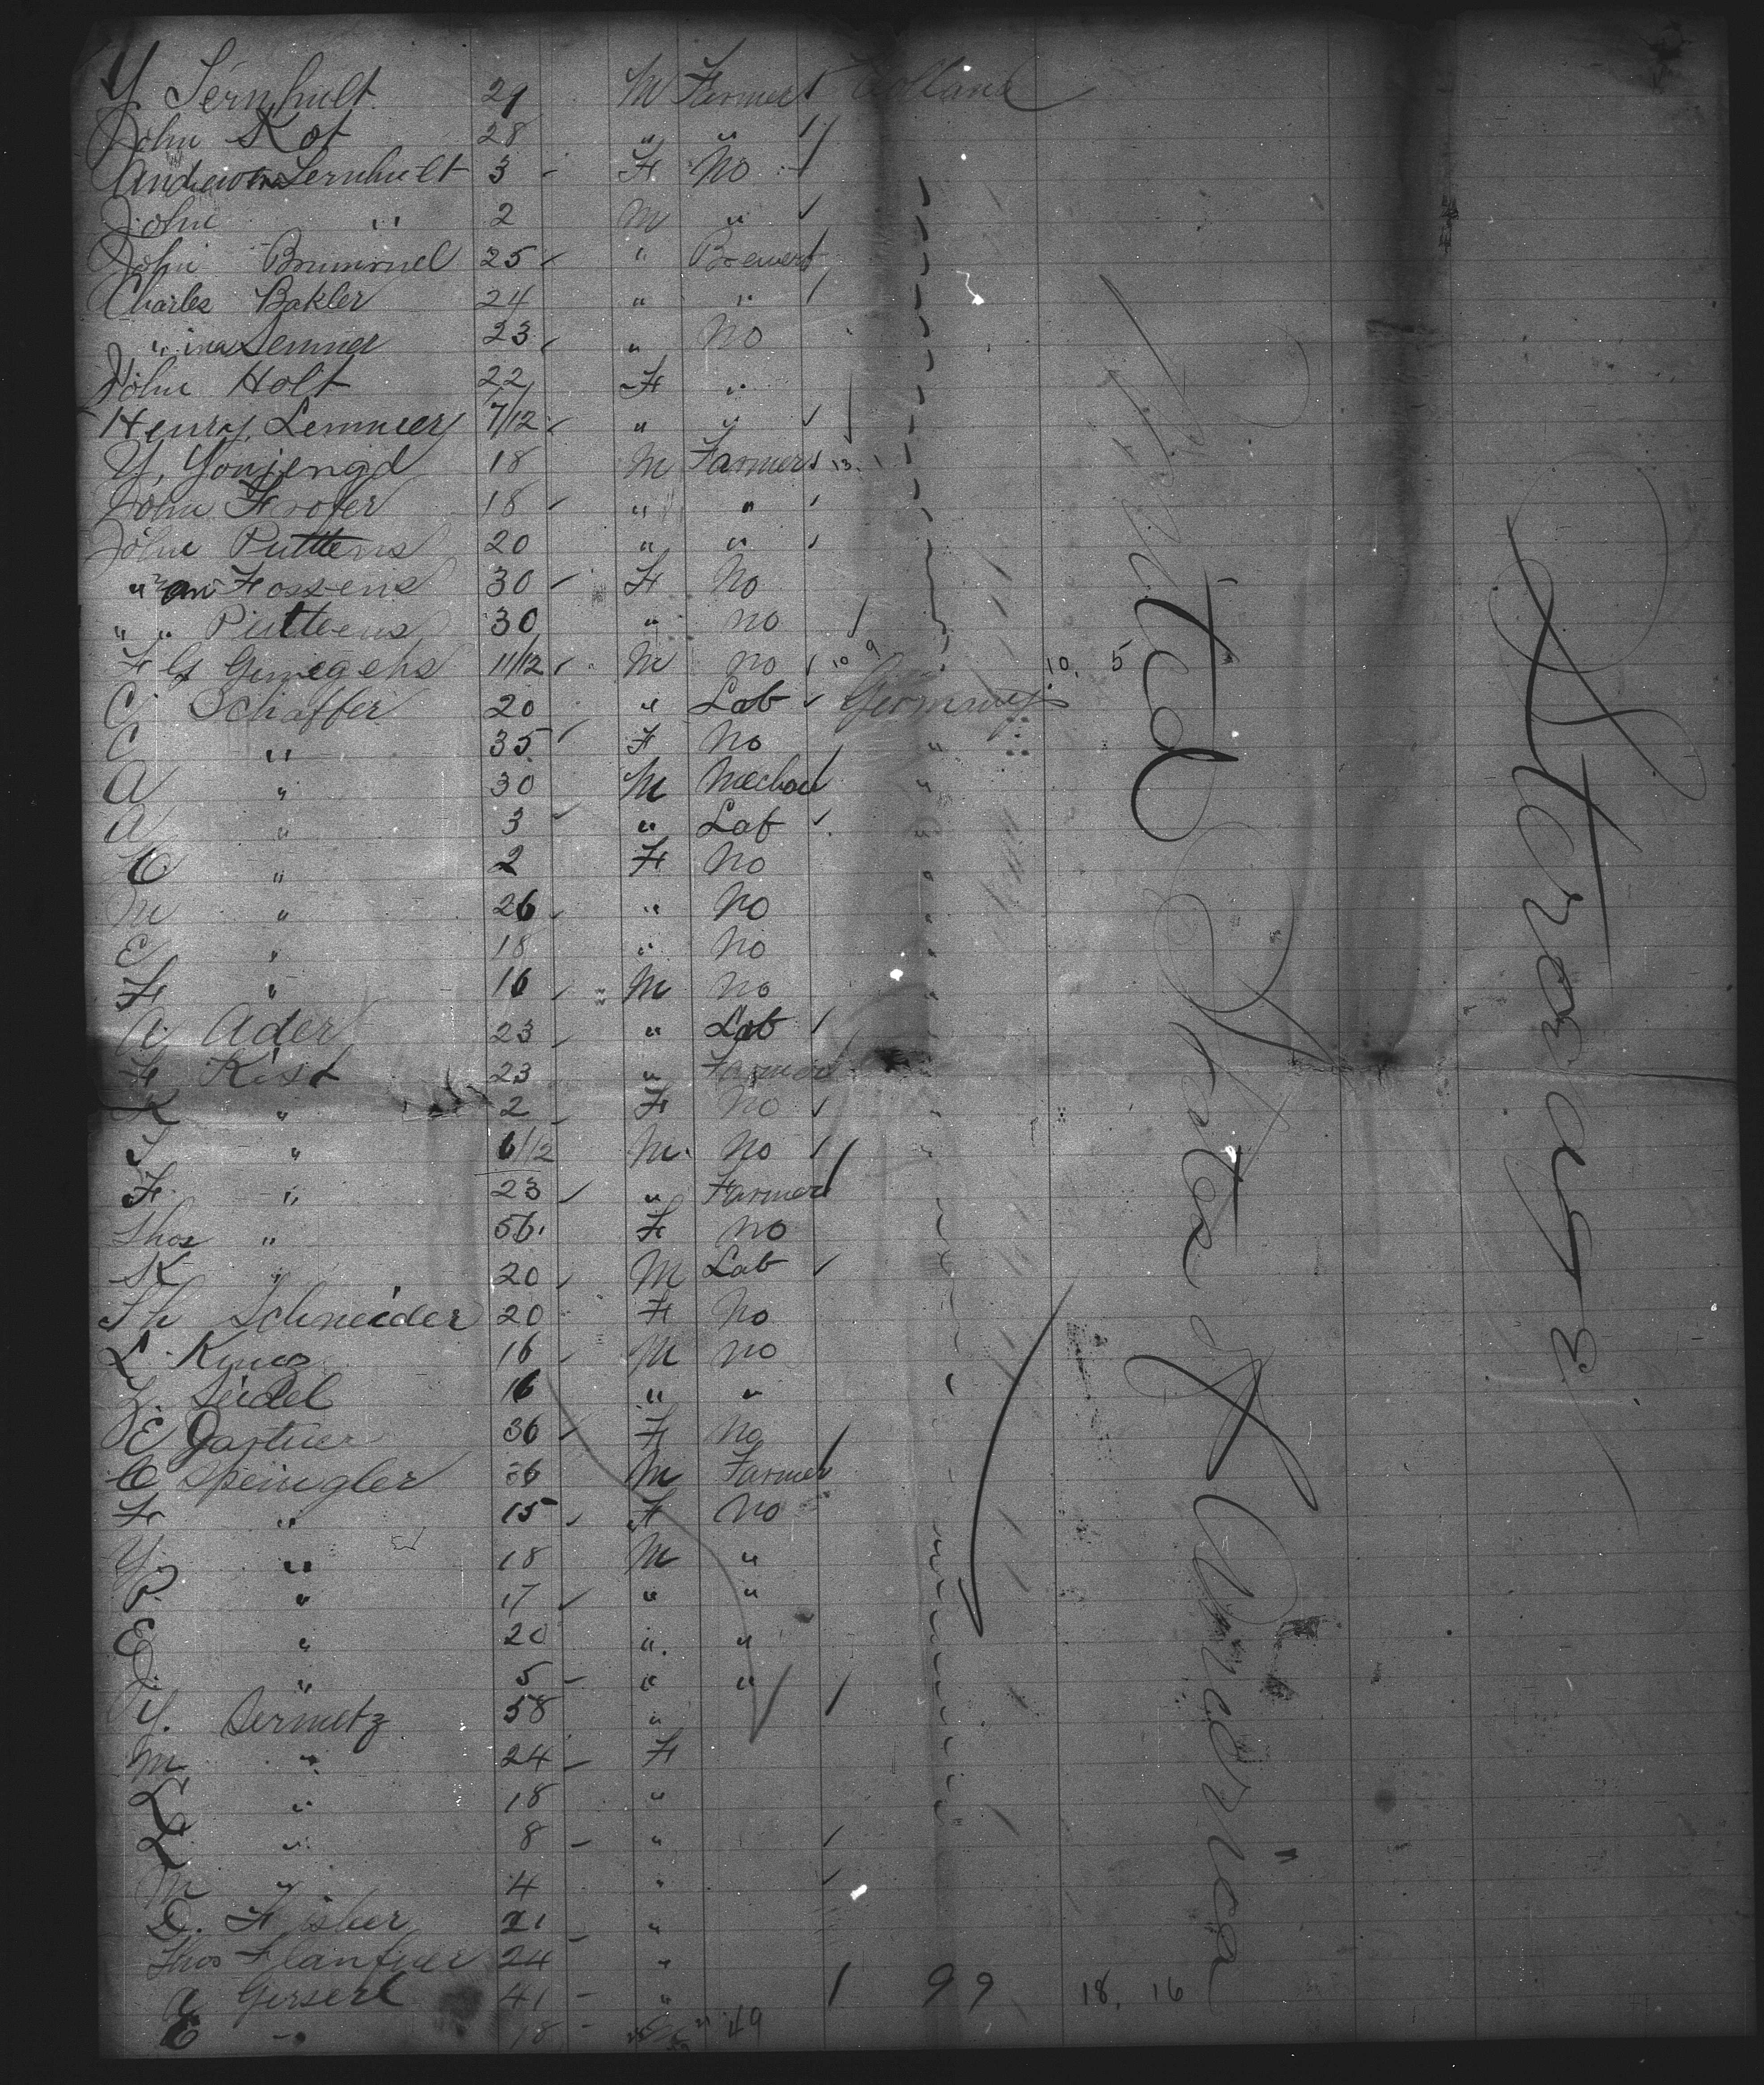 Y. Sernhult 29 M Farmer Holland
John Kot 28 " "
Andrew Sernhult 3 F No
John " 2 M "
John Brummel 25 " Brewer
Charles Bakler 24 " "
" Lemmer 23 " No
John Holt 22 F "
Henry Lemmer 7/12 " "
Y. Yonjengd 18 M Farmer 13
John Froter 18 " "
John Puttens 20 " "
" Fossens 30 F No
" " Putteens 30 " No
F G Gimegehs 11/12 M No 10 9 10. 5
C Schaffer 20 " Lab Germany
C " 35 F No
A " 30 M Mechan
A " 3 " Lab
C " 2 F No
M " 26 " No
E " 18 " No
F " 16 M No
A Ader 23 " Lab
F Kist 23 " Farmer
K " 2 F No
" 6/12 M No
F " 23 " Farmer
Thos " 56 F No
K " 20 M Lab
Th Schneider 20 F No
L Kunz 16 M No
L. Seidel 16 " "
E Gartner 36 F No
C Speingler 36 M Farmer
F " 15 F No
Y. " 18 M "
P. " 17 " "
E " 20 " "
" 5 " "
Y. Sermetz 58 "
M " 24 F
L " 18 "
L " 8 "
M " 4 "
D. Fisher 21 "
Thos Flanfuer 24 "
a Gerserl 41 " 99 18. 16
E " 18 M 49
United States of America
Steerage